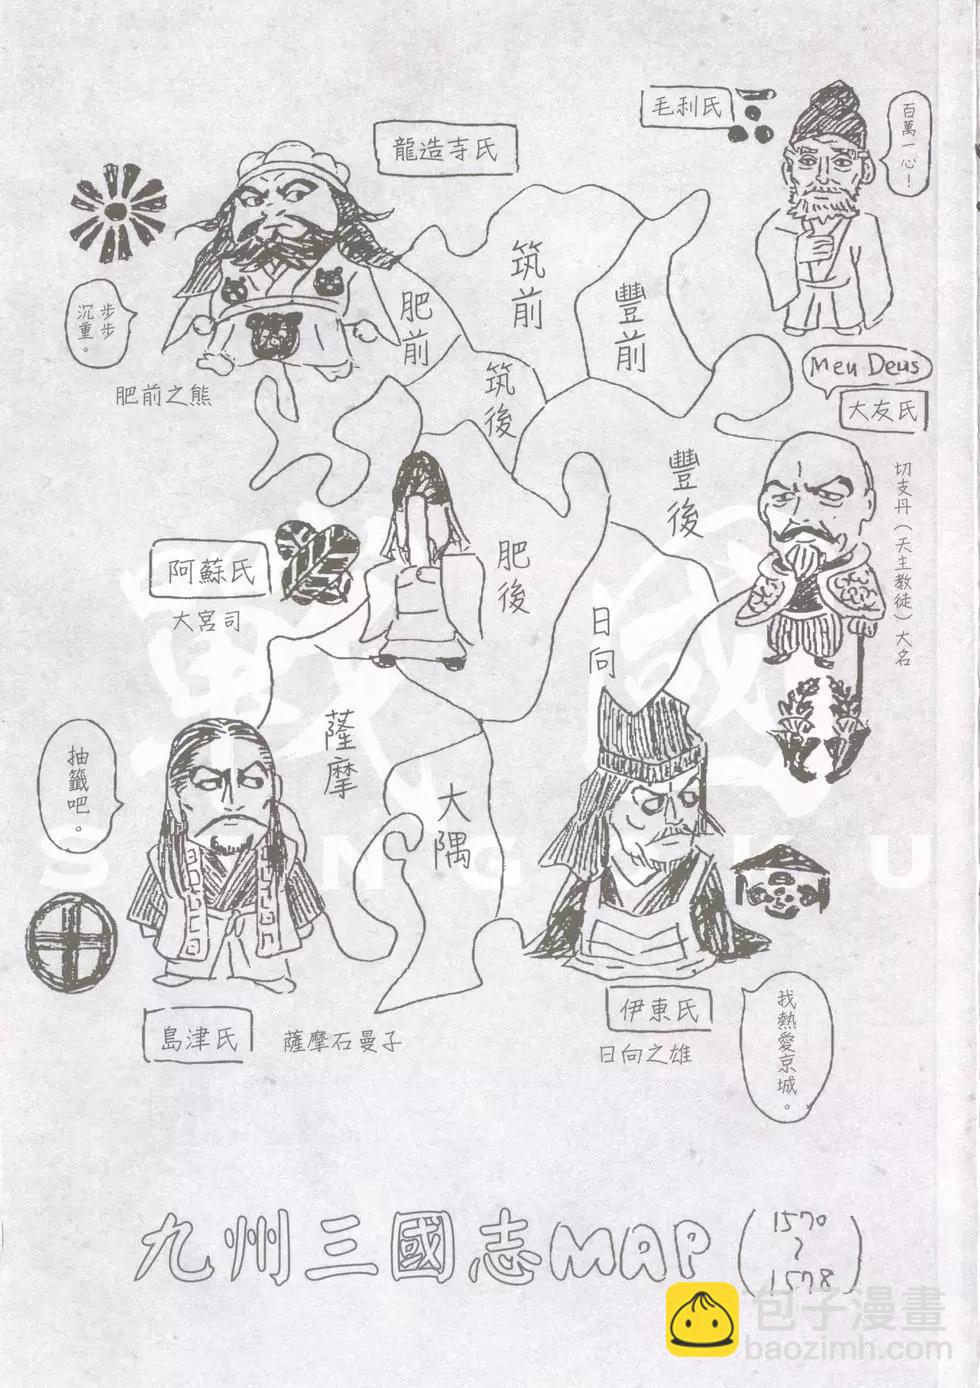 毛利氏
百萬一心！
龍造寺氏
步步
沉重。
肥前之熊
筑前
豐前
肥前
筑後
Meu Deus
大友氏
切支丹（天主教徒）大名
豐後
肥後
阿蘇氏
大宮司
日向
薩摩
大隅
抽籤吧。
島津氏
薩摩石曼子
伊東氏
日向之雄
我熱愛京城。
戰國
SENGOKU
九州三國志MAP（1570～1578）
包子漫畫
baozimh.com